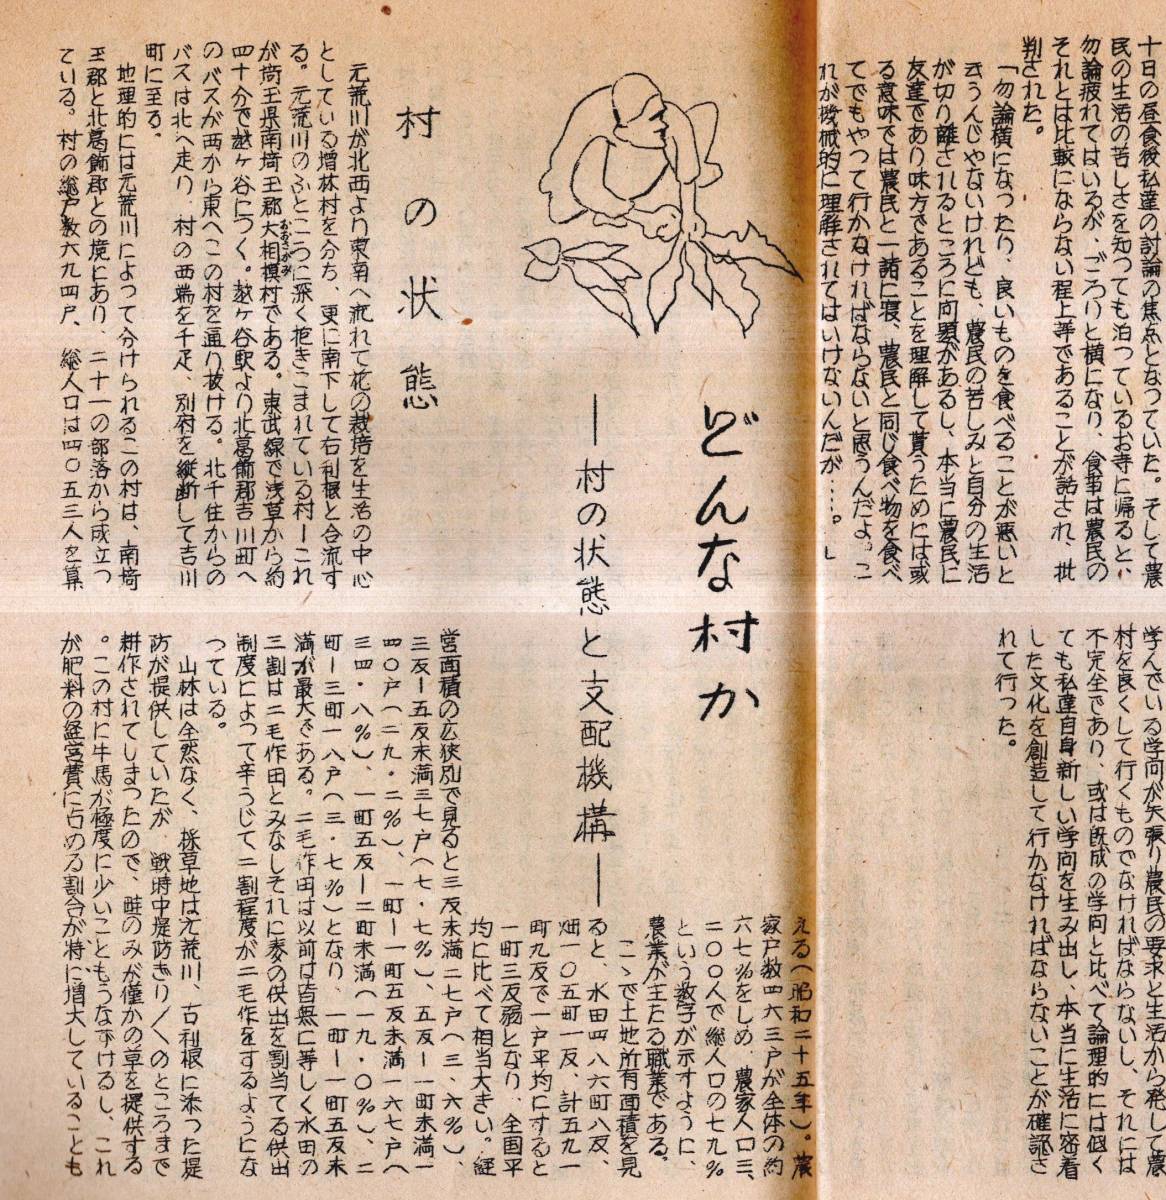 十日の昼食後私達の討論の焦点となつていた。そして農
民の生活の苦しさを知っても泊っているお寺に帰ると、
勿論疲れてはいるが、ごろりと横になり、食事は農民の
それとは比較にならない程上等であることが話され、批
判された。
「勿論横になったり、良いものを食べることが悪いと
云うんじやないけれども、農民の苦しみと自分の生活
が切り離されるところに问題があるし、本当に農民に
友達であり味方であることを理解して貰うためには或
る意味では農民と一諸に寝、農民と同じ食べ物を食べ
てでもやって行かなければならないと思うんだよ。こ
れが機械的に理解されてはいけないんだが‥‥。」
学んでいる学问が矢張り農民の要求と生活から発して農
村を良くして行くものでなければならないし、それには
不完全であり、或は既成の学问と比べて論理的には低く
ても私達自身新しい学问を生み出し、本当に生活に密着
した文化を創造して行かなければならないことが確認さ
れて行った。
どんな村か
―村の状態と支配機構―
村の状態
元荒川が北西より東南へ流れて花の栽培を生活の中心
としている増林村を分ち、更に南下して右利根と合流す
る。元荒川のふところに深く抱きこまれている村ーこれ
が埼玉県南埼玉郡大相模村である。東武線で浅草から約
おおさがみ
四十分で越ヶ谷につく。越ヶ谷駅より北葛飾郡吉川町へ
のバスが西から東へこの村を通り抜ける。北千住からの
バスは北へ走り、村の西端を千疋、別府を縦断して吉川
町に至る。
地理的には元荒川によって分けられるこの村は、南埼
玉郡と北葛飾郡との境にあり、二十一の部落から成立つ
ている。村の総戸数六九四戸、総人口は四〇五三人を算
える(昭和二十五年)。農
家戸数四六三戸が全体の約
六七%をしめ、農家人口三、
二〇〇人で総人口の七九%
という数字が示すように、
農業が主たる職業である。
こゝで土地所有面積を見
ると、水田四八六町八反、
畑一〇五町一反、計五九一
町九反で一戸平均にすると
一町三反弱となり、全国平
均に比べて相当大きい。経
営面積の広狭別で見ると三反未満二七戸(三・六%)、
三反ー五反未満三七戸(七・七%)、五反ー一町未満一
四〇戸(二九・二%)、一町ー一町五反未満一六七戸(
三四・八%)、一町五反ー二町未満(一九・〇%)、二
町ー三町一八戸(三・七%)となり、一町ー一町五反未
満が最大である。二毛作田は以前は皆無に等しく水田の
三割は二毛作田とみなしそれに麦の供出を割当てる供出
制度によって辛うじて二割程度が二毛作をするようにな
っている。
山林は全然なく、採草地は元荒川、古利根に添った堤
防が提供していたが 戦時中堤防ぎり〱のところまで
耕作されてしまつたので、畦のみが僅かの草を提供する
。この村に牛馬が極度に少いこともうなずけるし、これ
が肥料の経営費に占める割合が特に増大していることも